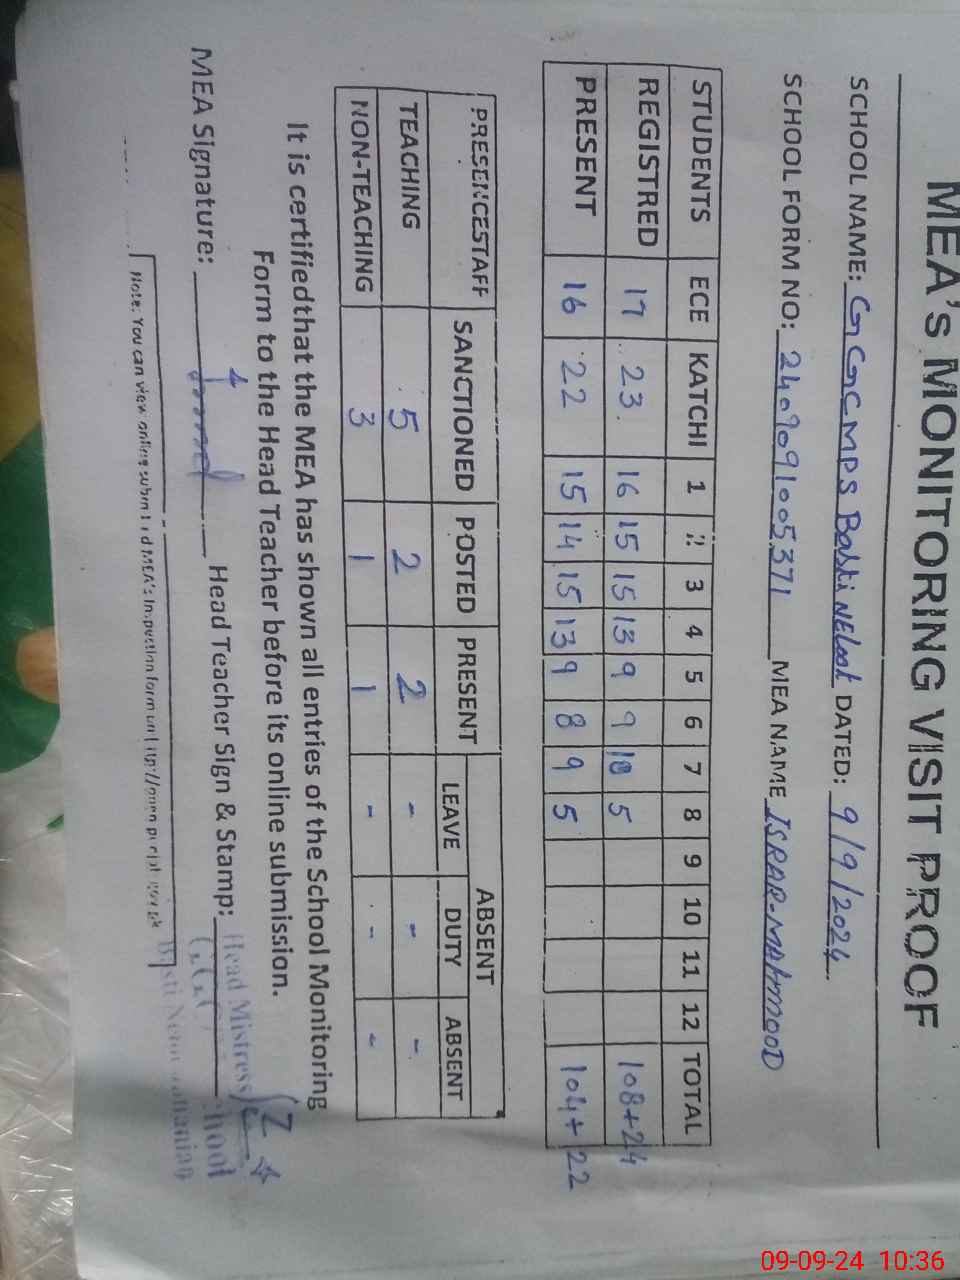 MEA's MONITORING VISIT PROOF
SCHOOL NAME: GGCMPS Basti DATED: 9/9/2024
SCHOOL FORM NO: 2409091005371 MEA NAME ISRAR-MAHMOOD
STUDENTS ECE KATCHI 1 3 4 5 6 7 8 9 10 11 12 TOTAL
REGISTRED 17 23 16 15 15 13 9 9 10 5 108+24
PRESENT 16 22 15 14 15 13 9 8 9 5 104+22
PRESENCESTAFF SANCTIONED POSTED PRESENT ABSENT
LEAVE DUTY ABSENT
TEACHING 5 2 2 - - -
NON-TEACHING 3 1 1 - - -
It is certifiedthat the MEA has shown all entries of the School Monitoring
Form to the Head Teacher before its online submission.
MEA Signature: Head Teacher Sign & Stamp:
Head Mistress
School
Basti
Note: You can view online MEA's Inspection form
09-09-24 10:36